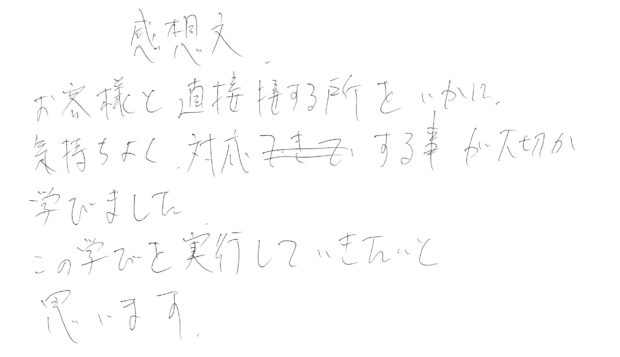 感想文
お客様と直接接する所をいかに、
気持ちよく、対応する事が大切か
学びました
この学びを実行していきたいと
思います。